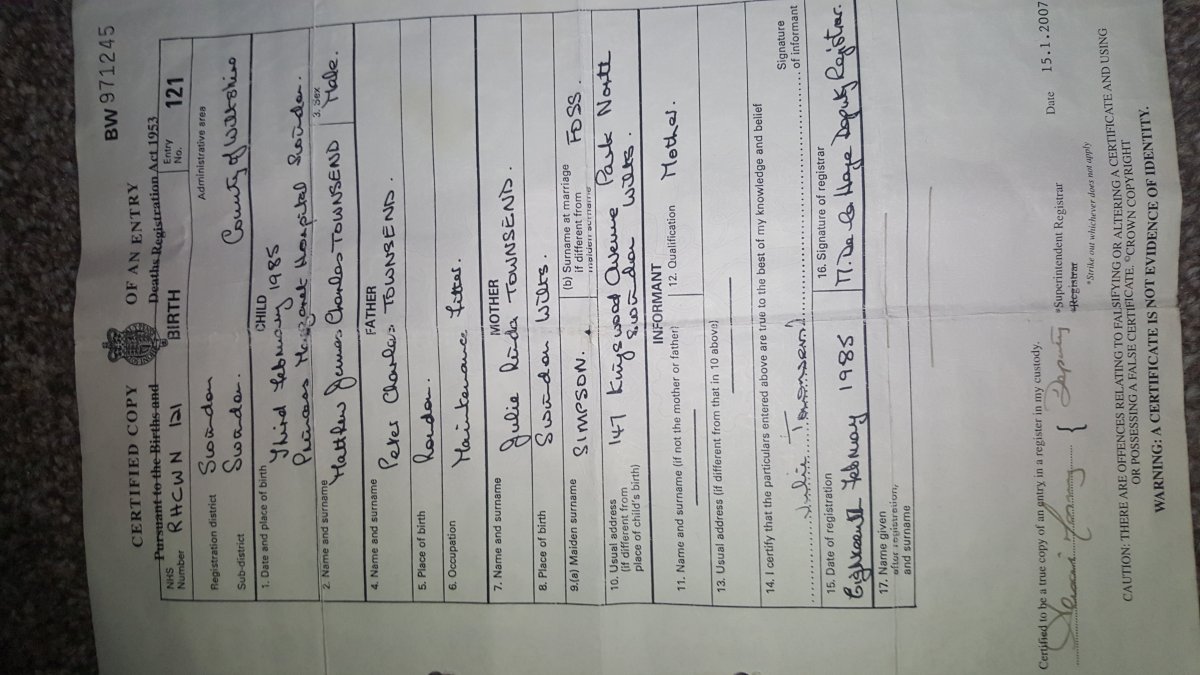 BW 971245
CERTIFIED COPY OF AN ENTRY
Pursuant to the Births and Deaths Registration Act 1953
NHS Number RHCWN 121
BIRTH
Entry No. 121
Registration district Swindon
Administrative area
Sub-district Swindon.
County of Wiltshire
CHILD
1. Date and place of birth
Third February 1985
Princess Margaret Hospital Swindon.
2. Name and surname
Matthew James Charles TOWNSEND
3. Sex
Male.
FATHER
4. Name and surname
Peter Charles TOWNSEND.
5. Place of birth
London.
6. Occupation
Maintenance Fitter.
MOTHER
7. Name and surname
Julie Linda TOWNSEND.
8. Place of birth
Swindon Wilts.
9.(a) Maiden surname
SIMPSON.
(b) Surname at marriage if different from maiden surname
FOSS.
10. Usual address
(if different from
place of child's birth)
147 Kingswood Avenue Park North
Swindon Wilts.
INFORMANT
11. Name and surname (if not the mother or father)
12. Qualification
Mother.
13. Usual address (if different from that in 10 above)
14. I certify that the particulars entered above are true to the best of my knowledge and belief
Julie Townsend
Signature
of informant
15. Date of registration
Eighteenth February 1985
16. Signature of registrar
M. De La Haye Deputy Registrar.
17. Name given
after registration,
and surname
Certified to be a true copy of an entry in a register in my custody.
{ Deputy
*Superintendent Registrar
*Registrar
Date 15.1.2007
*Strike out whichever does not apply
CAUTION: THERE ARE OFFENCES RELATING TO FALSIFYING OR ALTERING A CERTIFICATE AND USING
OR POSSESSING A FALSE CERTIFICATE. ©CROWN COPYRIGHT
WARNING: A CERTIFICATE IS NOT EVIDENCE OF IDENTITY.